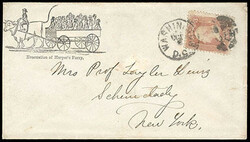 WASHINGTON
D.C.
Evacuation of Harper's Ferry.
Mrs Prof Tayler Lewis
Schenectady
New York.